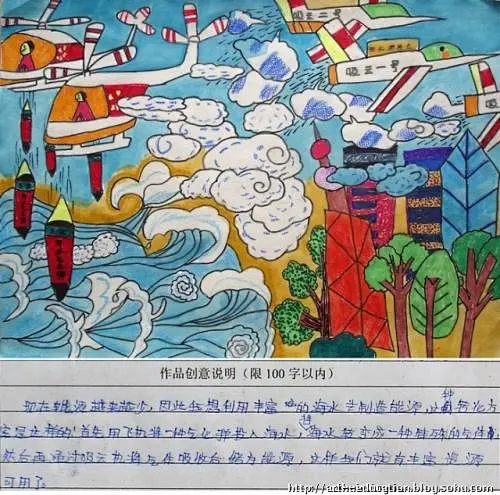 吸云二号
吸云一号
作品创意说明（限 100 字以内）
现在能源越来越少，因此我想利用丰富的海水去制造能源，这种
这样的：首先用飞机将一种气化弹投入海水，海水变成一种特殊的气体，
然后再通过吸云机将气体吸收合成为能源，这样我们就有丰富资源
可用了